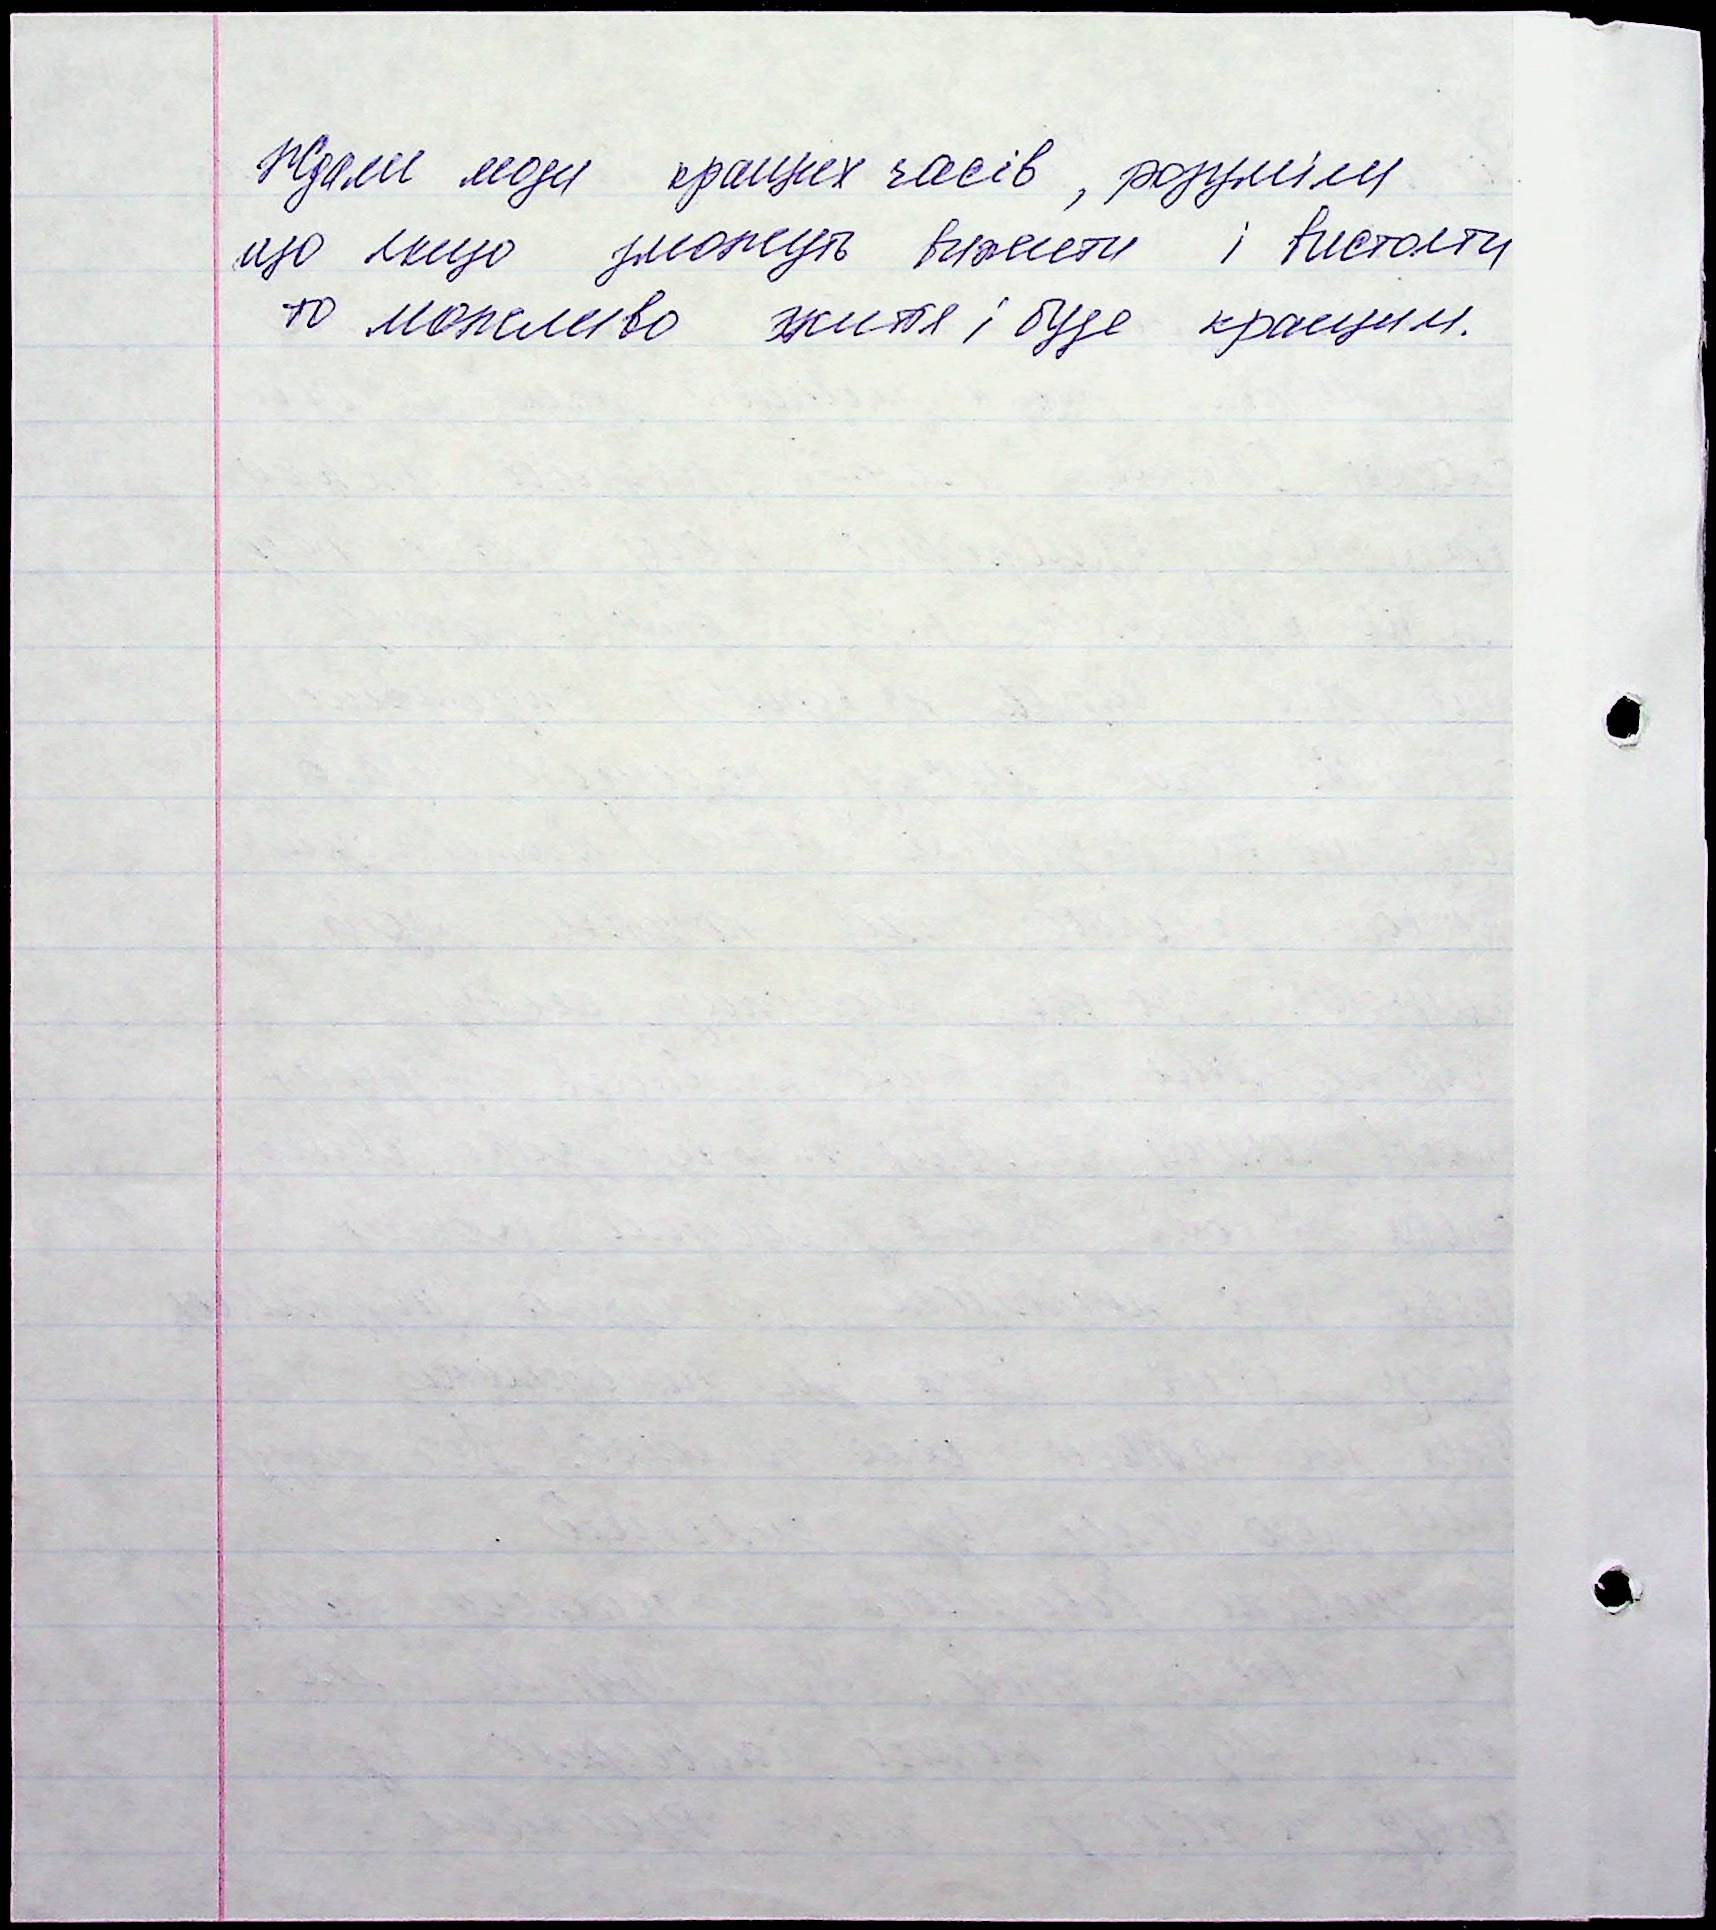 Ждали люди кращих часів, розуміли
що якщо зможуть вижити і вистояти
то можливо життя і буде кращим.